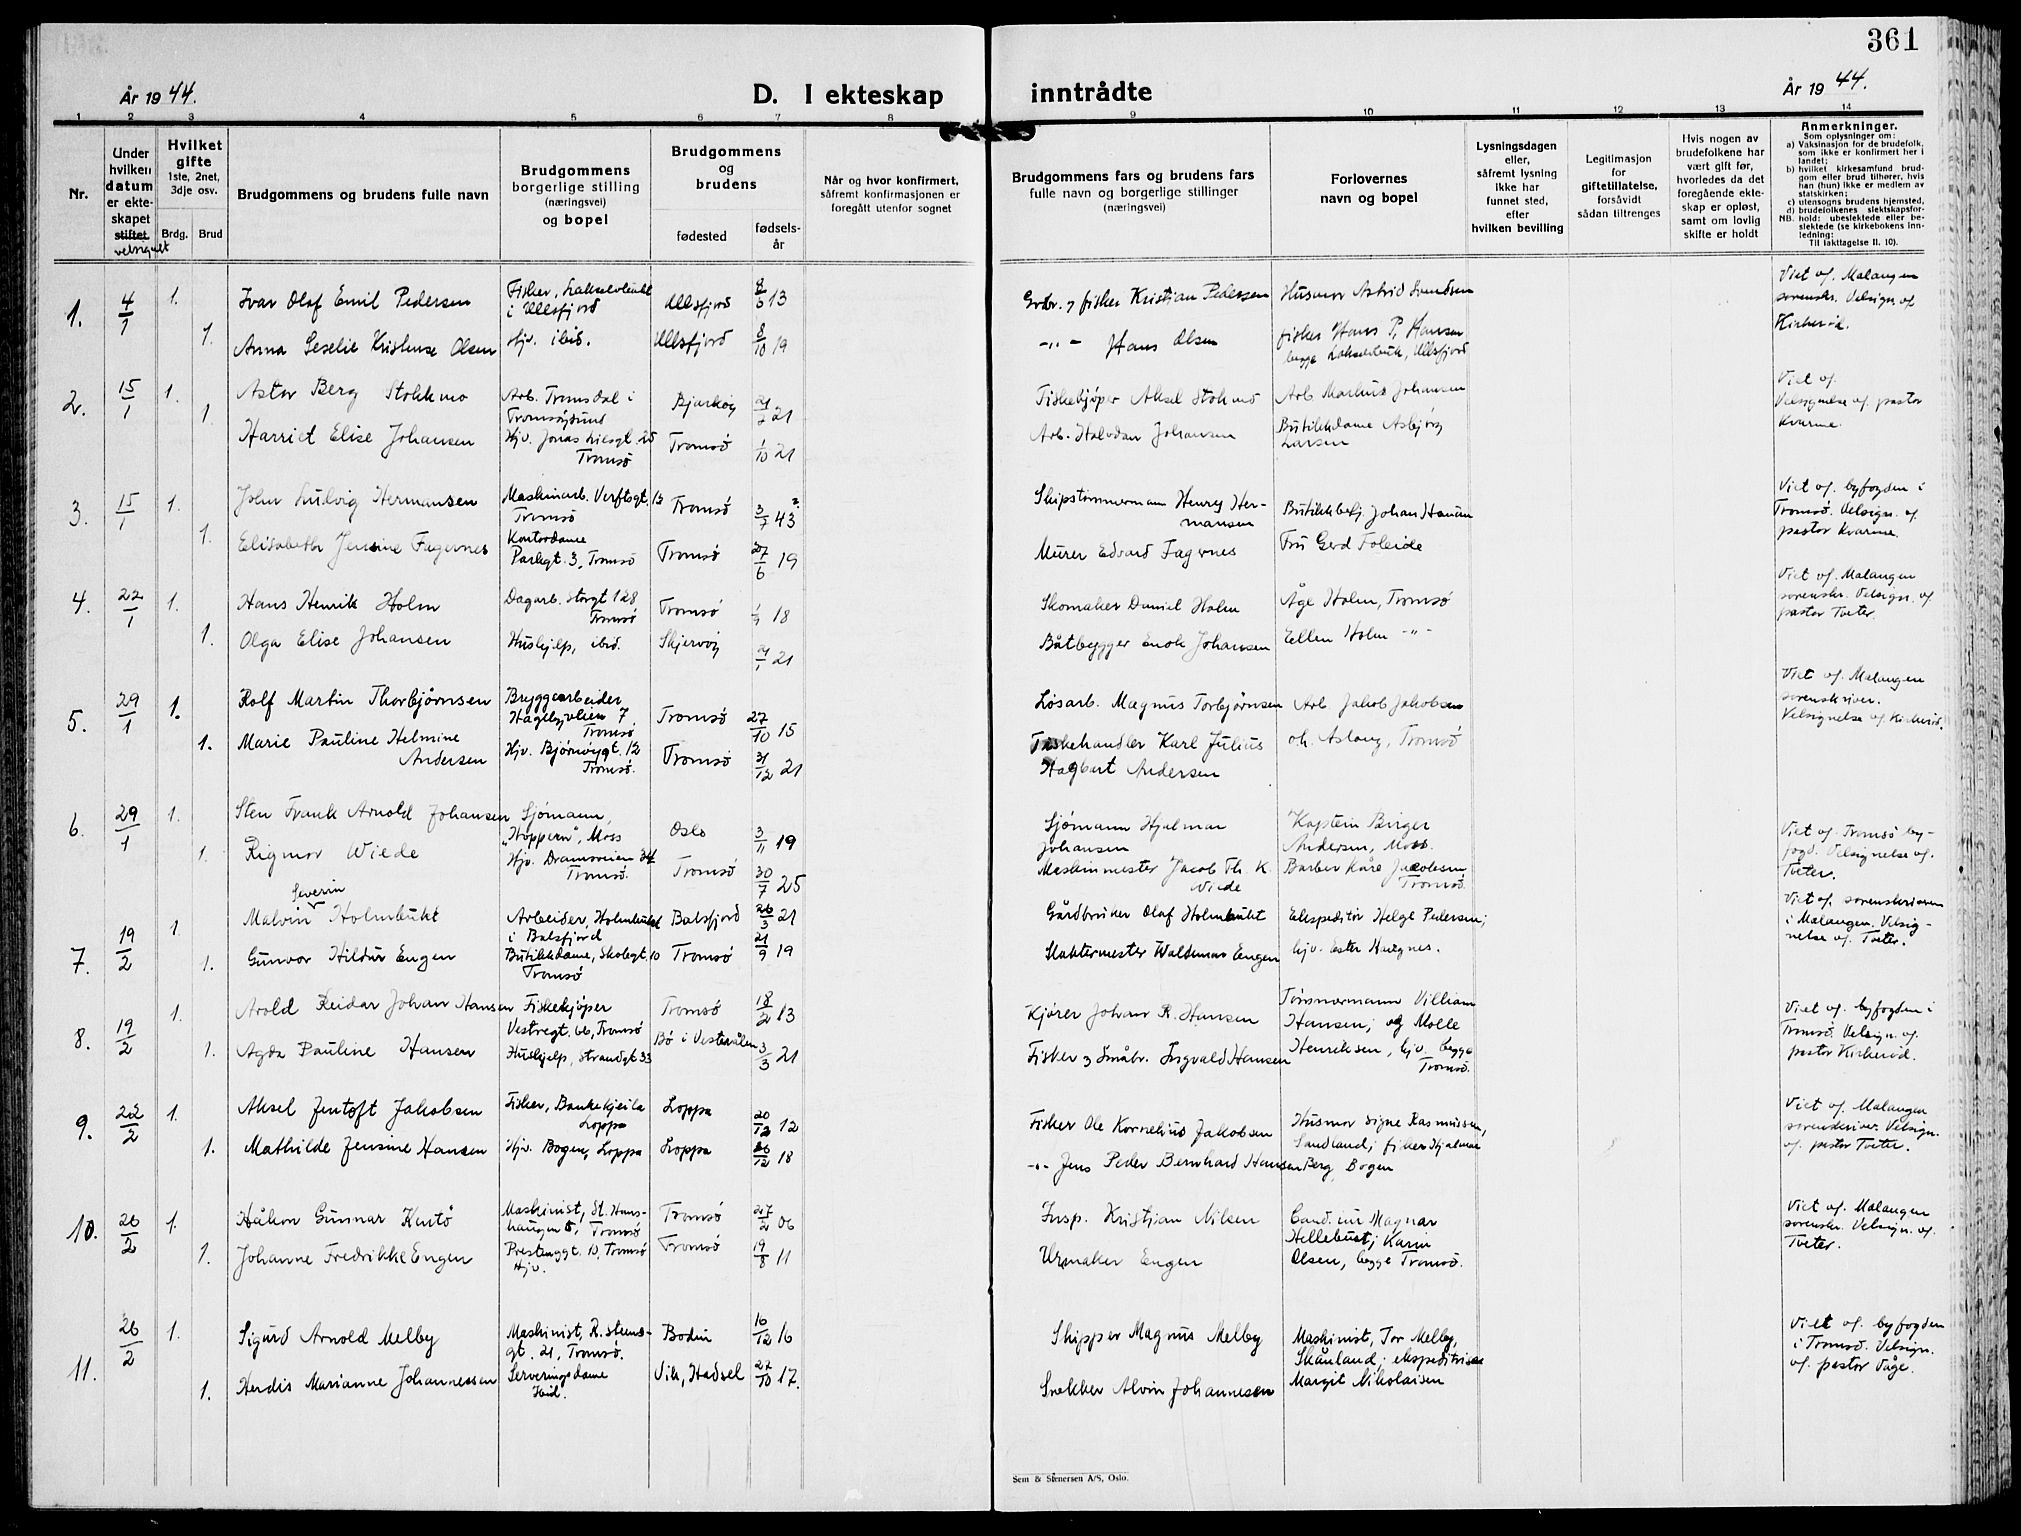 361
År 1944.
D. I ekteskap inntrådte
År 1944.
1 2 3 4 5 6 7 8 9 10 11 12 13 14
Nr.
Under hvilken datum er ekteskapet stiftet velsignet
Hvilket gifte 1ste, 2net, 3dje osv.
Brdg. Brud
Brudgommens og brudens fulle navn
Brudgommens borgerlige stilling (næringsvei) og bopel
Brudgommens og brudens
fødested
fødselsår
Når og hvor konfirmert, såfremt konfirmasjonen er foregått utenfor sognet
Brudgommens fars og brudens fars fulle navn og borgerlige stillinger (næringsvei)
Forlovernes navn og bopel
Lysningsdagen eller, såfremt lysning ikke har funnet sted, efter hvilken bevilling
Legitimasjon for giftetillatelse, forsåvidt sådan tiltrenges
Hvis nogen av brudefolkene har vært gift før, hvorledes da det foregående ekteskap er opløst, samt om lovlig skifte er holdt
Anmerkninger.
Som oplysninger om:
a) Vaksinasjon for de brudefolk, som ikke er konfirmert her i landet;
b) hvilket kirkesamfund brudgom eller brud tilhører, hvis han (hun) ikke er medlem av statskirken;
c) utensogns brudens hjemsted,
d) brudefolkenes slektskapsforhold: ubeslektede eller beslektede (se kirkebokens innledning:
NB. Til iakttagelse II. 10).
1. 4/1 1. Ivar Olaf Emil Pedersen
Fisker, i Ullsfjord
Ullsfjord 13
Grdbr. og fisker Kristian Pedersen
Husmor Astrid
Viet af. Malangen sorenskr. Velsign. af Kirkerød.
1. Anna Olsen
Hjv. ibid.
Ullsfjord 8/10 19
-"- Hans Olsen
fisker Hans P. Hansen begge Ullsfjord
2. 15/1 1. Astor Berg Stokkmo
Arb. Tromsdal i Tromsøysund
Bjarkøy 21
Aksel Stokmo
Arb. Markus Johansen
Viet af. Velsignelse af. pastor Kvarme.
1. Harriet Elise Johansen
Hjv. Jonas Liesgt. 25 Tromsø
Tromsø 1/10 21
Arb. Halvdan Johansen
Butikkdame Asbjørg Larsen
3. 15/1 1. John Ludvig Hermansen
Maskinarb. Verftsgt. 13 Tromsø
Tromsø 3/7 43 ?
Skipstømmermann Henry Hermansen
Butikkbetj. Johan
Viet af. byfogden i Tromsø. Velsign. af pastor Kvarme.
1. Elisabeth Jensine Fagernes
Kontordame Parkgt. 3, Tromsø
Tromsø 27/6 19
Murer Edvard Fagernes
Fru Gerd
4. 22/1 1. Hans Henrik Holm
Dagarb. Storgt 128 Tromsø
Tromsø 18
Skomaker Daniel Holm
Åge Holm, Tromsø
Viet af. Malangen sorenskr. Velsign. af pastor Tveter.
1. Olga Elise Johansen
Hushjelp, ibid.
Skjervøy 21
Båtbygger Enok Johansen
Ellen Holm -"-
5. 29/1 1. Rolf Martin Thorbjørnsen
Bryggearbeider, 7 Tromsø
Tromsø 27/10 15
Løsarb. Magnus Torbjørnsen
Arb. Jakob Jakobsen
Viet af. Malangen sorenskriver. Velsignelse af Kirkerød.
1. Marie Pauline Helmine Andersen
Hjv. 12 Tromsø.
Tromsø 31/12 21
Fiskehandler Karl Julius Hagbart Andersen
og Aslaug, Tromsø
6. 29/1 1. Sten Frank Arnold Johansen
Sjømann, "Høppern", Moss
Oslo 3/11 19
Sjømann Hjalmar Johansen
Kaptein Birger Andersen, Moss.
Viet af Tromsø byfogd. Velsignelse af. Tveter.
1. Rigmor Wiede
Hjv. Dramsveien 34 Tromsø.
Tromsø 30/7 25
Maskinmester Jacob Th. K. Wiede
Barber Kåre Jacobsen, Tromsø.
7. 19/2 1. Malvin Severin Holmbukt
Arbeider, Holmbukt i Balsfjord
Balsfjord 26/3 21
Gårdbruker Olaf Holmbukt
Ekspeditør Helge Pedersen;
Viet af. sorenskriveren i Malangen. Velsignelse af. Tveter.
1. Gunvor Hildur Engen
Butikkdame, Skolegt. 10 Tromsø
Tromsø 21/9 19
Slaktermester Waldemar Engen
hjv. Ester
8. 19/2 1. Arold Reidar Johan Hansen
Fiskekjøper Vestregt. 66, Tromsø
Tromsø 18/2 13
Kjører Johan R. Hansen
Villiam Hansen; og Molle
Viet af. byfogden i Tromsø. Velsign. af. pastor Kirkerød.
1. Agda Pauline Hansen
Hushjelp, Strandgt 33
Bø i Vesterålen 3/3 21
Fisker og Småbr. Ingvald Hansen
Henriksen, hjv. begge Tromsø.
9. 22/2 1. Aksel Jentoft Jakobsen
Fisker, Loppa
Loppa 20/12 12
Fisker Ole Kornelius Jakobsen
Husmor Signe Rasmussen,
Viet af. Malangen sorenskriver. Velsign. af. pastor Tveter.
1. Mathilde Jensine Hansen
Hjv. Bogen, Loppa
Loppa 26/12 18
-"- Jens Peder Bernhard Hansen
Sandland; fisker Hjalmar Berg, Bogen
10. 26/2 1. Håkon Gunnar
Maskinist, St. Hanshaugen 5, Tromsø
Tromsø 27/2 06
Insp. Kristian Nilsen
Cand. jur Magnar Hellebust; Karin
Viet af. Malangen sorenskr. Velsign. af. Tveter.
1. Johanne Fredrikke Engen
Prestenggt. 10, Tromsø Hjv.
Tromsø 19/8 11
Urmaker Engen
Olsen, begge Tromsø.
11. 26/2 1. Sigurd Arnold Melby
Maskinist, gt. 21, Tromsø.
Bodin 16/12 16
Skipper Magnus Melby
Maskinist, Tor Melby, Skånland; ekspeditrise
Viet af. byfogden i Tromsø. Velsign. af. pastor Våge.
1. Herdis Marianne Johannessen
Serveringsdame ibid.
Vik, Hadsel 27/10 17.
Snekker Alvin Johannesen
Margit Nikolaisen
Sem & Stenersen A/S, Oslo.